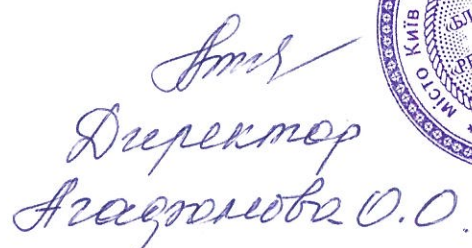 Директор
Агаджанова О.О
Місто Київ